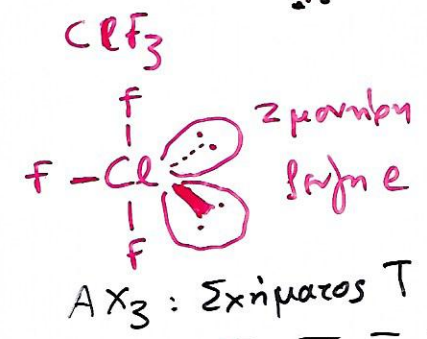 ClF3
F
F - Cl
2 μονήρη
ζεύγη e
F
AX3 : Σχήματος T